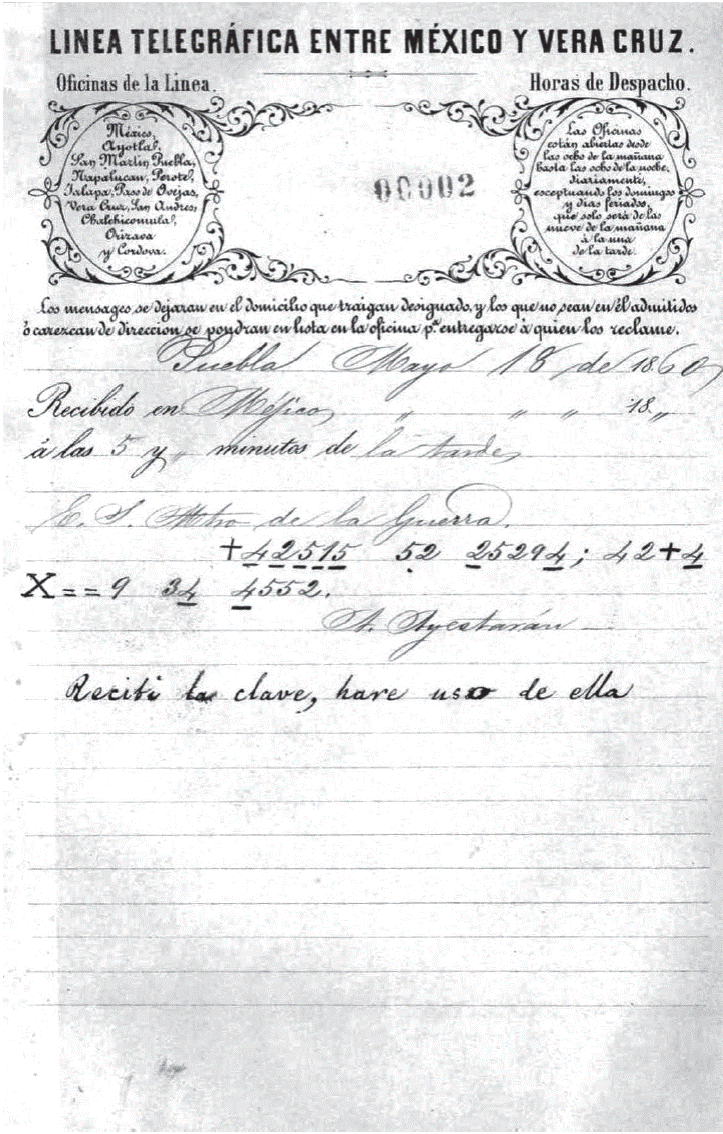 LINEA TELEGRÁFICA ENTRE MÉXICO Y VERA CRUZ.
Oficinas de la Linea.
México,
Ayotla,
San Martin, Puebla,
Napalucan, Perote,
Jalapa, Paso de Ovejas,
Vera Cruz, San Andres,
Chalchicomula,
Orizava
y Cordova.
00002
Horas de Despacho.
Las Oficinas
están abiertas desde
las ocho de la mañana
hasta las ocho de la noche,
diariamente,
esceptuando los domingos
y dias feriados,
que solo será de las
nueve de la mañana
á la una
de la tarde.
Los mensages se dejaran en el domicilio que traigan designado, y los que no sean en él admitidos
ó carezcan de direccion se pondran en lista en la oficina pª entregarse á quien los reclame.
Puebla Mayo 18 de 1860,
Recibido en Méjico, „ „ „ 18 „
á las 5 y „ minutos de la tarde,
E. S. Mtro de la Guerra.
+42515 52 25294; 42+4
X==9 34 4552.
A. Ayestarán
Recibi la clave, hare uso de ella